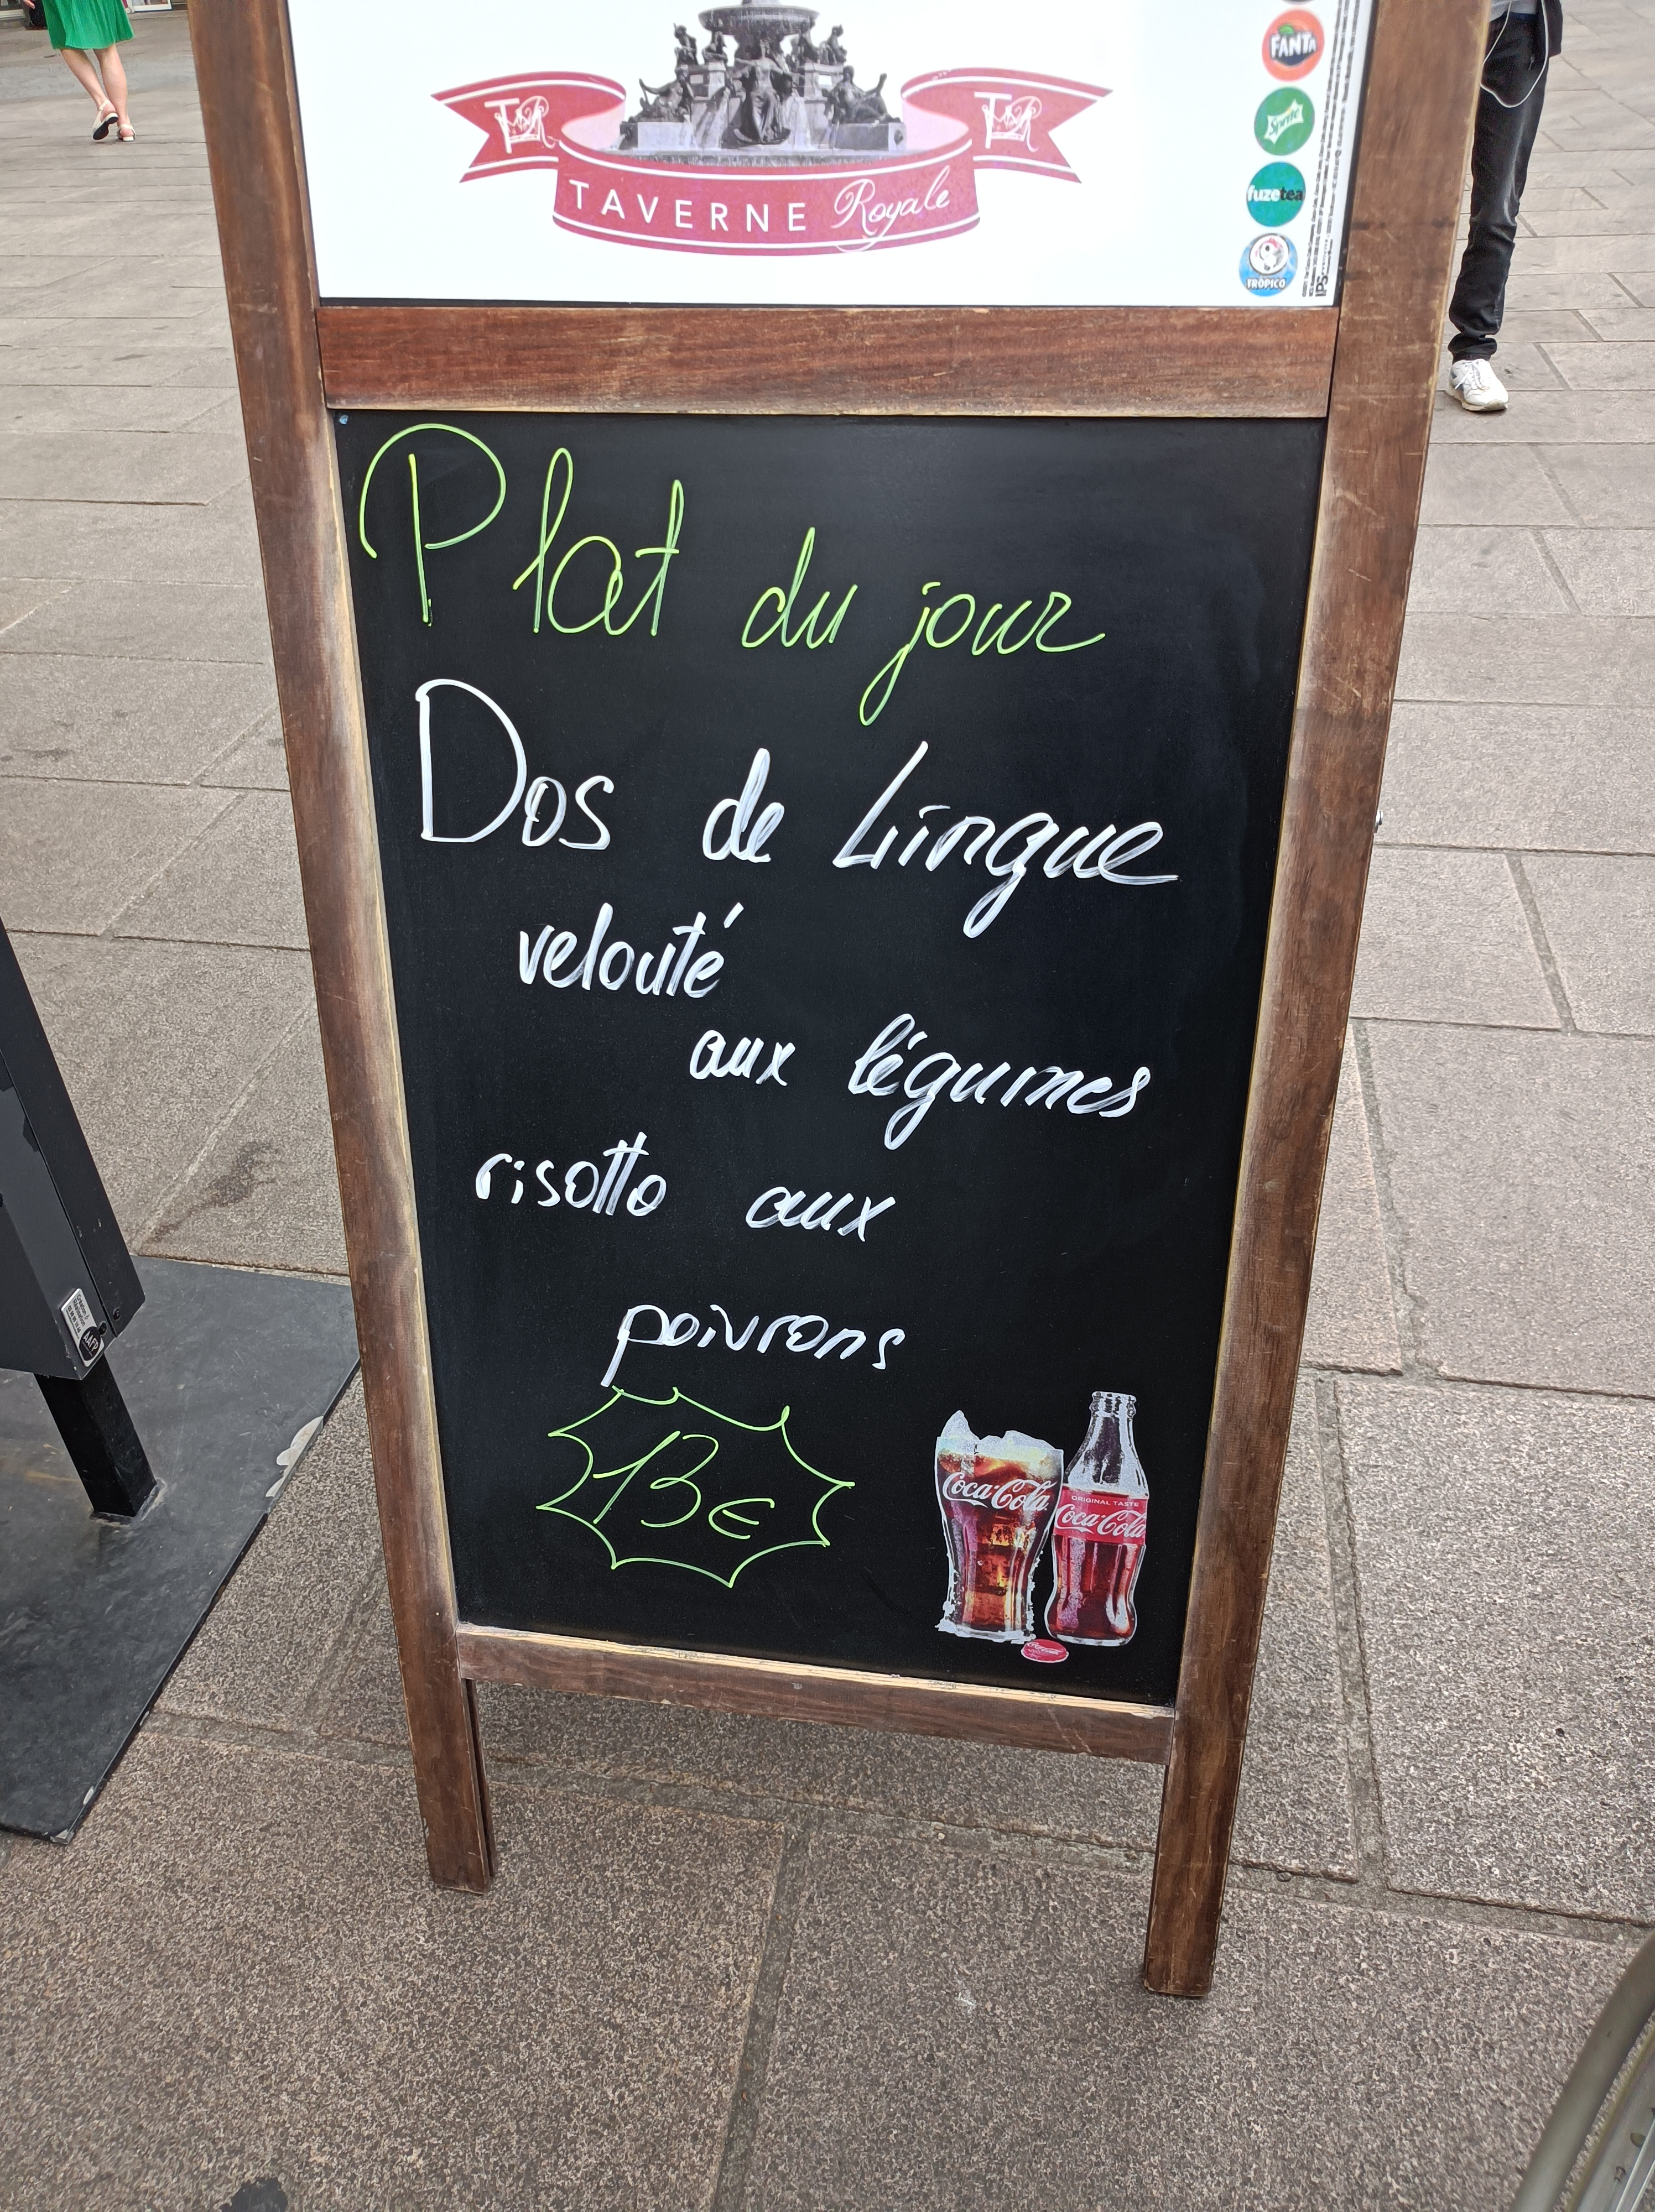 FANTA
Sprite
fuzetea
TROPICO
TR TR
TAVERNE Royale
Plat du jour
Dos de Lingue
velouté
aux légumes
risotto aux
poivrons
13€
Coca-Cola
ORIGINAL TASTE
Coca-Cola